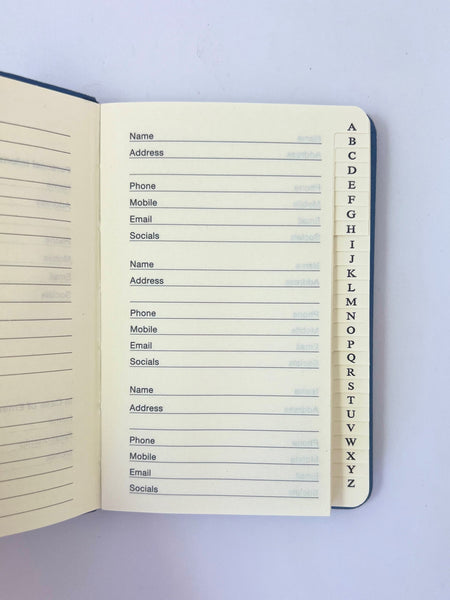 Name
Address
Phone
Mobile
Email
Socials
Name
Address
Phone
Mobile
Email
Socials
Name
Address
Phone
Mobile
Email
Socials
A
B
C
D
E
F
G
H
I
J
K
L
M
N
O
P
Q
R
S
T
U
V
W
X
Y
Z